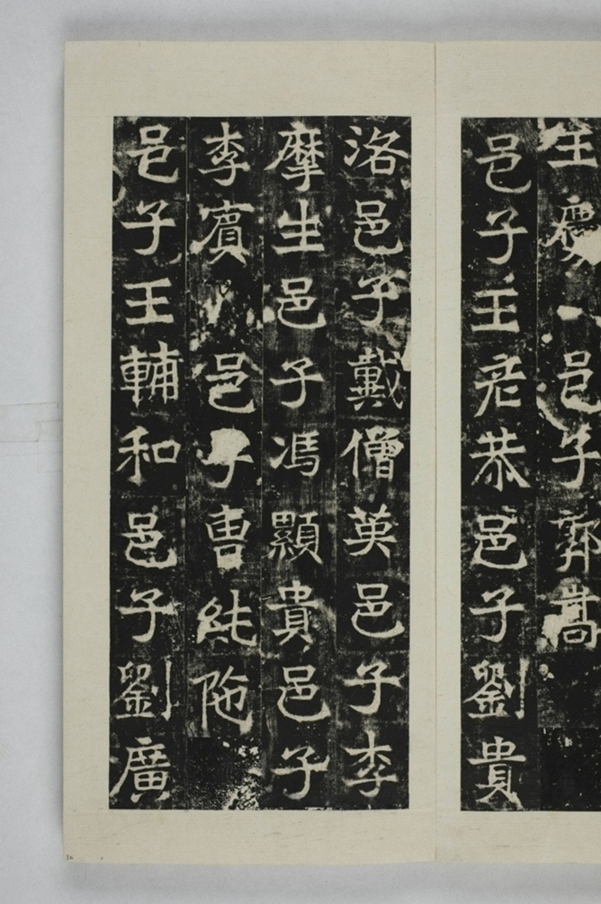 慶一邑子
邑子王恭邑子劉貴
洛邑子戴僧英邑子李
摩生邑子馮顯貴邑子
李賓邑子曹純陁
邑子王輔和邑子劉廣